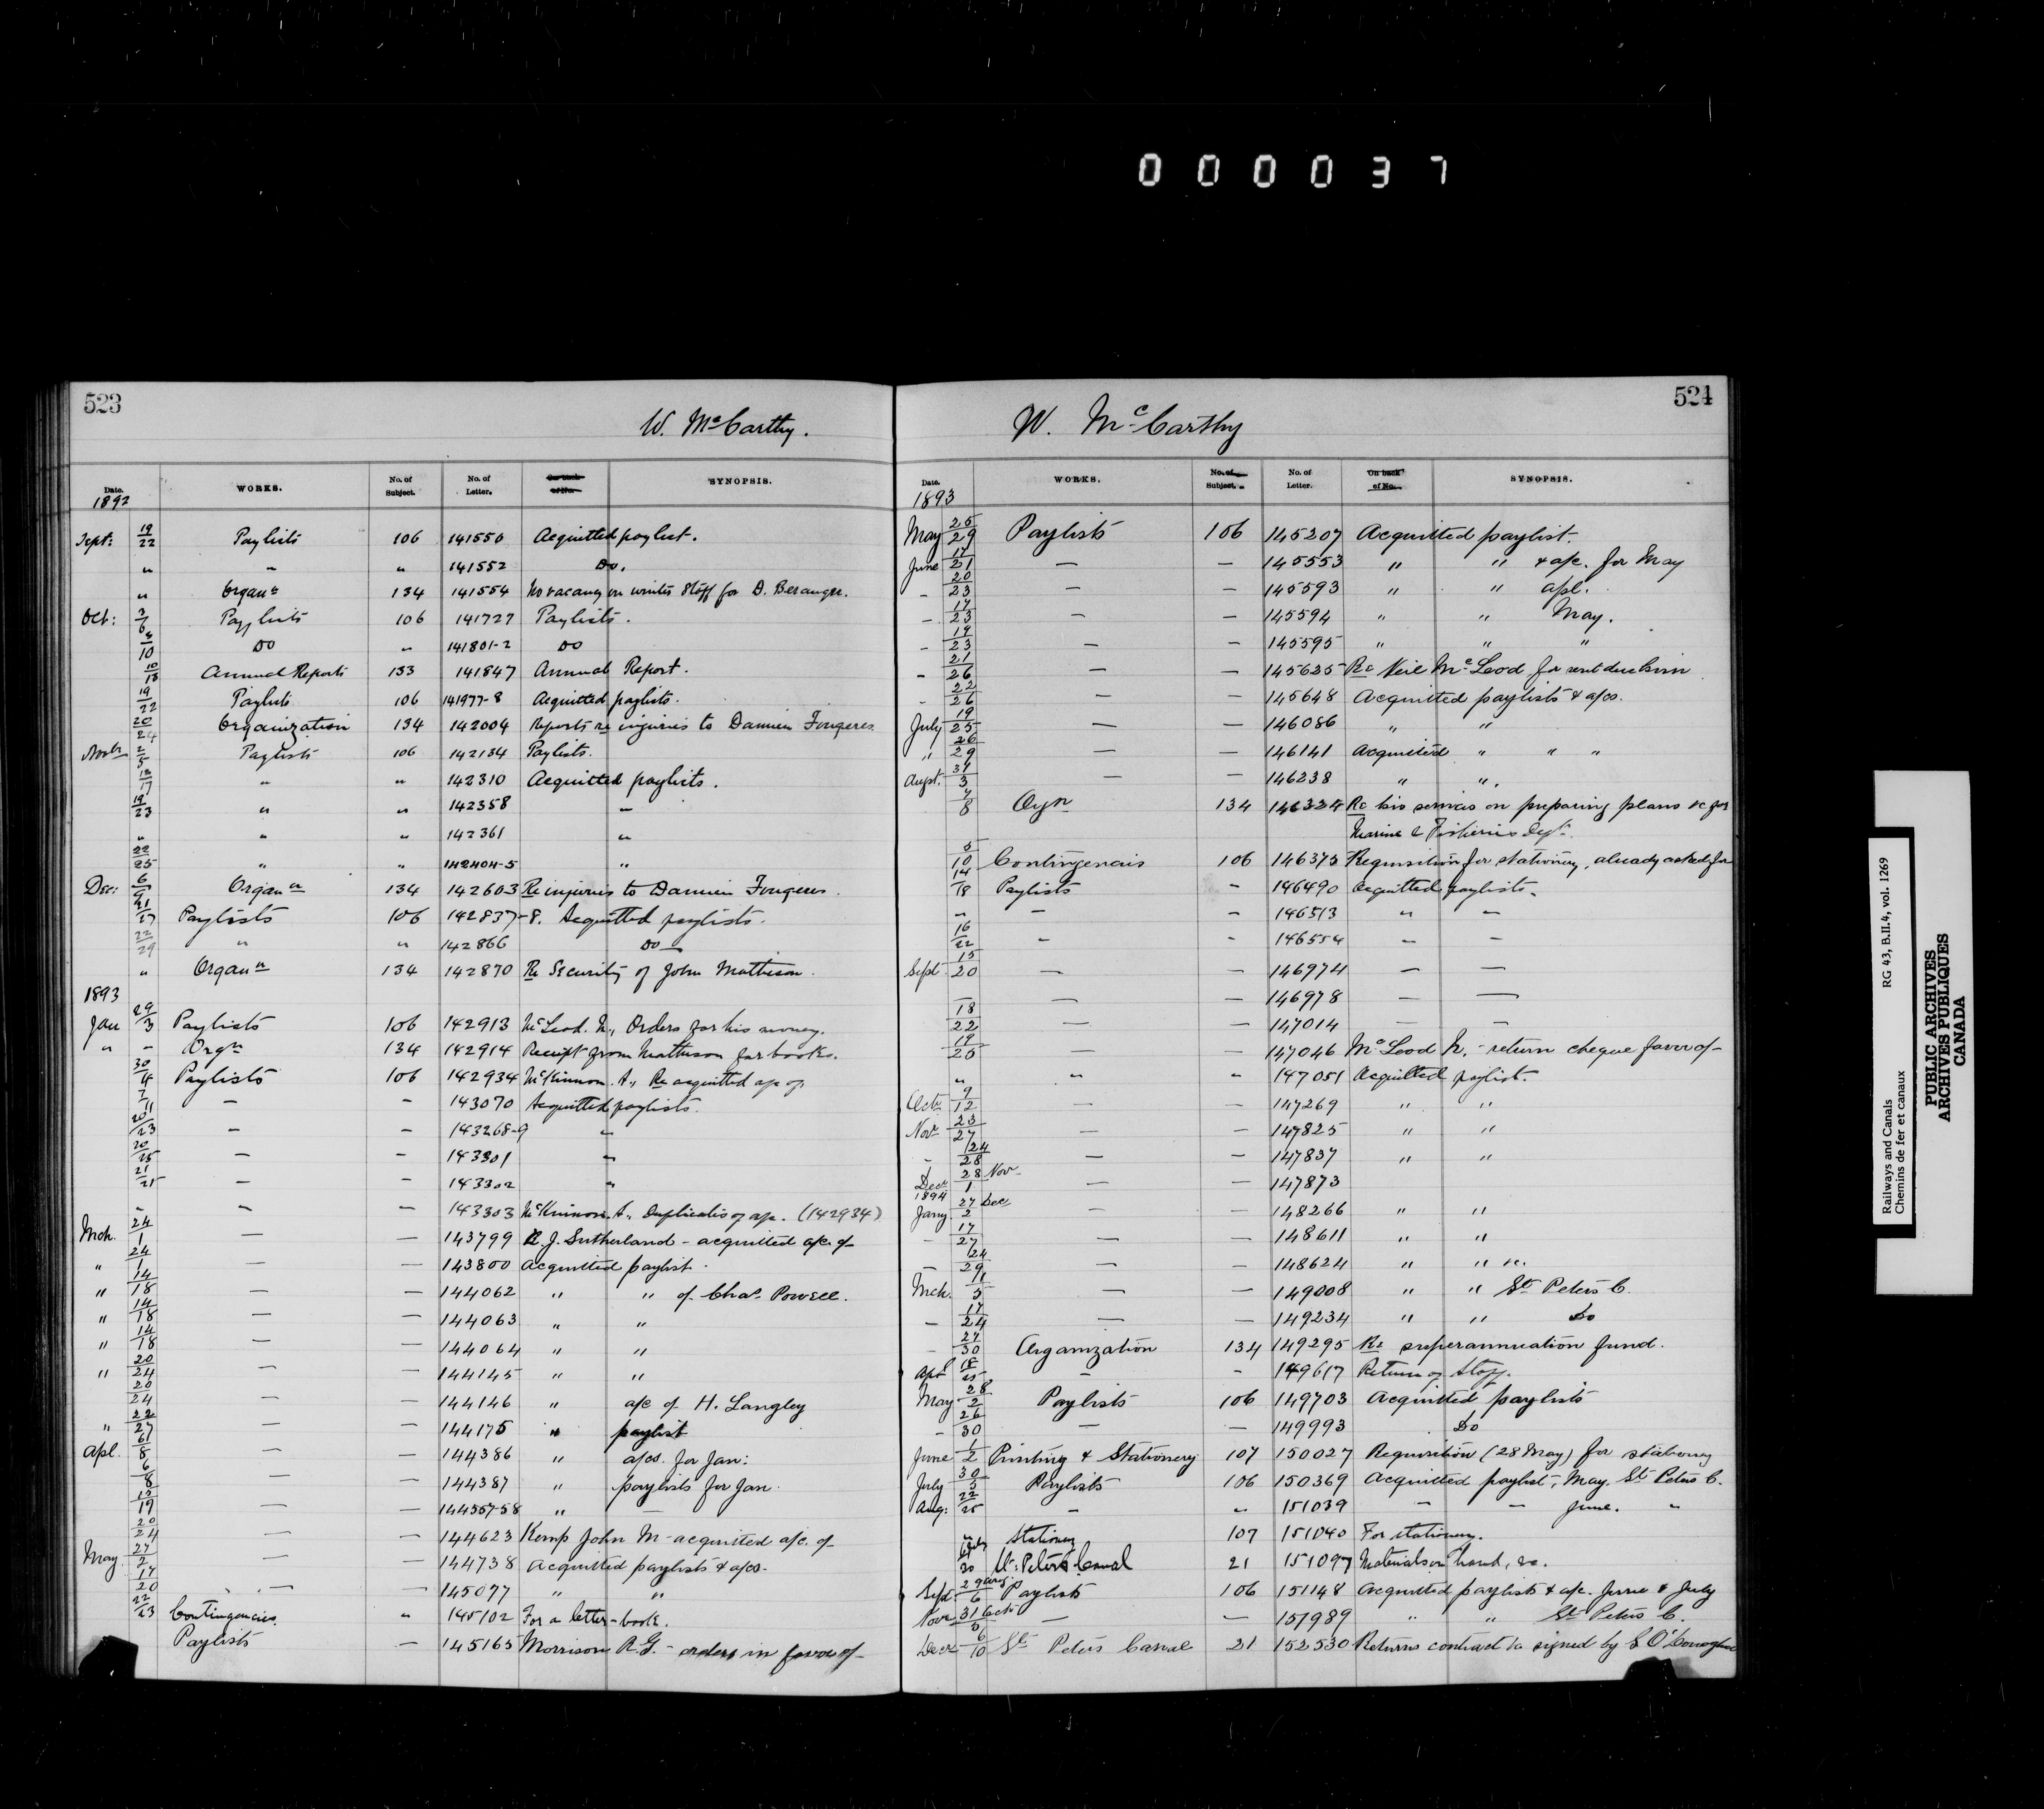 000037
523
W. McCarthy.
Date. WORKS. No. of Subject. No. of Letter. On back of No. SYNOPSIS.
1892
Sept: 19/22 Paylists 106 141550 Acquitted paylist.
" " " 141552 Do.
" Organn 134 141554 No vacancy on winter Staff for D. Beranger.
Oct: 3/6 Paylists 106 141727 Paylists.
10 Do " 141801-2 Do
10/13 Annual Reports 133 141847 Annual Report.
19/22 Paylists 106 141977-8 Acquitted paylists.
20/24 Organization 134 142004 Reports re injuries to Damien Fougeres
Novbr 2/5 Paylists 106 142134 Paylists.
/17 " " 142310 Acquitted paylists.
19/23 " " 142358 —
" " " 142361 "
22/25 " " 142404-5 "
Dec: 6/9 Organn 134 142603 Re injuries to Damien Fougeres
21/27 Paylists 106 142837-8. Acquitted paylists.
22/29 " " 142866 Do —
" Organn 134 142870 Re Security of John Matheson.
1893
Jan 29/3 Paylists 106 142913 McLeod. N., Orders for his money.
" - Orgn 134 142914 Receipt from Matheson for books.
30/4 Paylists 106 142934 McKinnon. A., Re acquitted a/c of
7/11 — - 143070 Acquitted paylists.
20/23 — - 143268-9 "
20/25 — - 143301 "
21/25 — - 143302 "
- — — 143303 McKinnon. A., Duplicates of a/c. (142934)
Mch. 24/1 — — 143799 R. J. Sutherland - acquitted a/c. of
" 24/1 — — 143800 Acquitted paylist.
" 14/18 — — 144062 " " of Chas. Powell.
" 14/18 — — 144063 " "
" 14/18 — — 144064 " "
" 20/24 — — 144145 " "
20/24 — — 144146 " a/c of H. Langley
" 22/27 — — 144175 " paylist
Apl. 6/8 — — 144386 " a/cs. for Jan:
6/8 — — 144387 " paylists for Jan.
/19 — — 144557-58 " —
20/24 — — 144623 Kemp John M - acquitted a/c. of
May 27/2 — — 144738 Acquitted paylists & a/cs.
17/20 — — 145077 " "
22/23 Contingencies " 145102 For a letter-book.
Paylists — 145165 Morrison R.G. - orders in favor of
524
W. McCarthy
Date. WORKS. No. of Subject. No. of Letter. On back of No. SYNOPSIS.
1893
May 25/29 Paylists 106 145207 Acquitted paylist.
June 17/21 — — 145553 " " & a/c. for May
- 20/23 — — 145593 " " apl.
- 17/23 — — 145594 " " May.
- 19/23 — — 145595 " " "
- 21/26 — — 145625 Re Neil McLeod for rent due him
- 22/26 — — 145648 Acquitted paylists & a/cs.
July 19/25 — — 146086 " "
" 26/29 — — 146141 Acquitted " " "
Augst. 31/3 — — 146238 " ".
/8 Orgn 134 146324 Re his services on preparing plans &c for
Marine & Fisheries Dept.
5/10 Contingencies 106 146375 Requisition for stationery, already asked for
14/18 Paylists - 146490 Acquitted paylists.
" — - 146513 " —
16/22 - - 146554 — —
Sept 15/20 — — 146974 — —
— — — 146978 — —
18/22 — — 147014 — —
19/25 — — 147046 McLeod N. - return cheque favor of -
" " " 147051 Acquitted paylist.
Octr 9/12 — — 147269 " "
Novr 23/27 — — 147825 " "
- 24/28 — — 147837 " "
Decr 28 Nov/1 — — 147873
1894
Jany 27 Dec/2 — — 148266 " "
- 17/27 — — 148611 " "
- 24/29 — — 148624 " " &c.
Mch. 1/5 — — 149008 " " St. Peters C.
- 17/24 — — 149234 " " Do
- 27/30 Organization 134 149295 Re superannuation fund.
Apl — - 149617 Return of Staff.
May 28/2 Paylists 106 149703 Acquitted paylists
- 26/30 — — 149993 Do
June 1/2 Printing & Stationery 107 150027 Requisition (28 May) for stationery
July 30/3 Paylists 106 150369 Acquitted paylist, May. St. Peters C.
Aug: 22/25 — " 151039 — — June. "
Stationery 107 151040 For stationery.
30 St. Peters Canal 21 151097 Materials on hand, &c.
Sept. 29 aug/6 Paylists 106 151148 Acquitted paylists & a/c. June & July
Novr 31 Oct/5 — — 151989 " " St. Peters C.
Decr 6/10 St. Peters Canal 21 152530 Returns contract &c signed by S O'Donoghue
Railways and Canals
Chemins de fer et canaux
RG 43, B.II.4, vol. 1269
PUBLIC ARCHIVES
ARCHIVES PUBLIQUES
CANADA